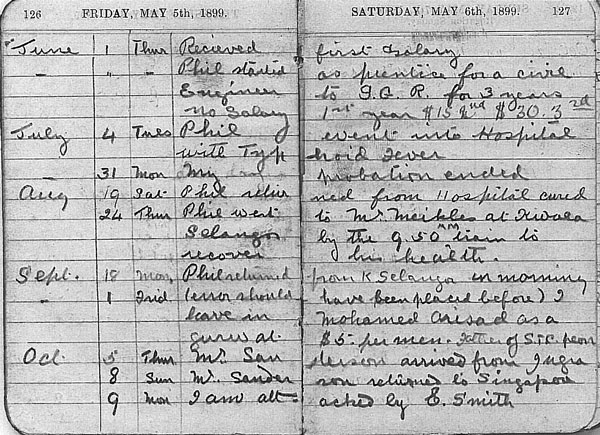 126 FRIDAY, MAY 5th, 1899. SATURDAY, MAY 6th, 1899. 127
June 1 Thur Recieved first Salary
— " - Phil started as prentice for a civil
Engineer to G.R. for 3 years
no Salary 1st year $15 2nd $30. 3rd
July 4 Tues Phil went into Hospital
with Typhoid Fever
— 31 Mon My probation ended
Aug 19 Sat Phil returned from Hospital cured
24 Thur Phil went to Mr. Meikles at Kwala
Selangor by the 9.50 AM train to
recover his health.
Sept. 18 Mon Phil returned from K Selangor in morning
— 1 Frid (error should have been placed before) I
leave in Mohamed Arisad as a
guru at $5 per men. Father of S.T.C. peon
Oct. 5 Thur Mr. San derson arrived from Ingra
8 Sun Mr. Sander son returned to Singapore
9 Mon I am att acked by E. Smith